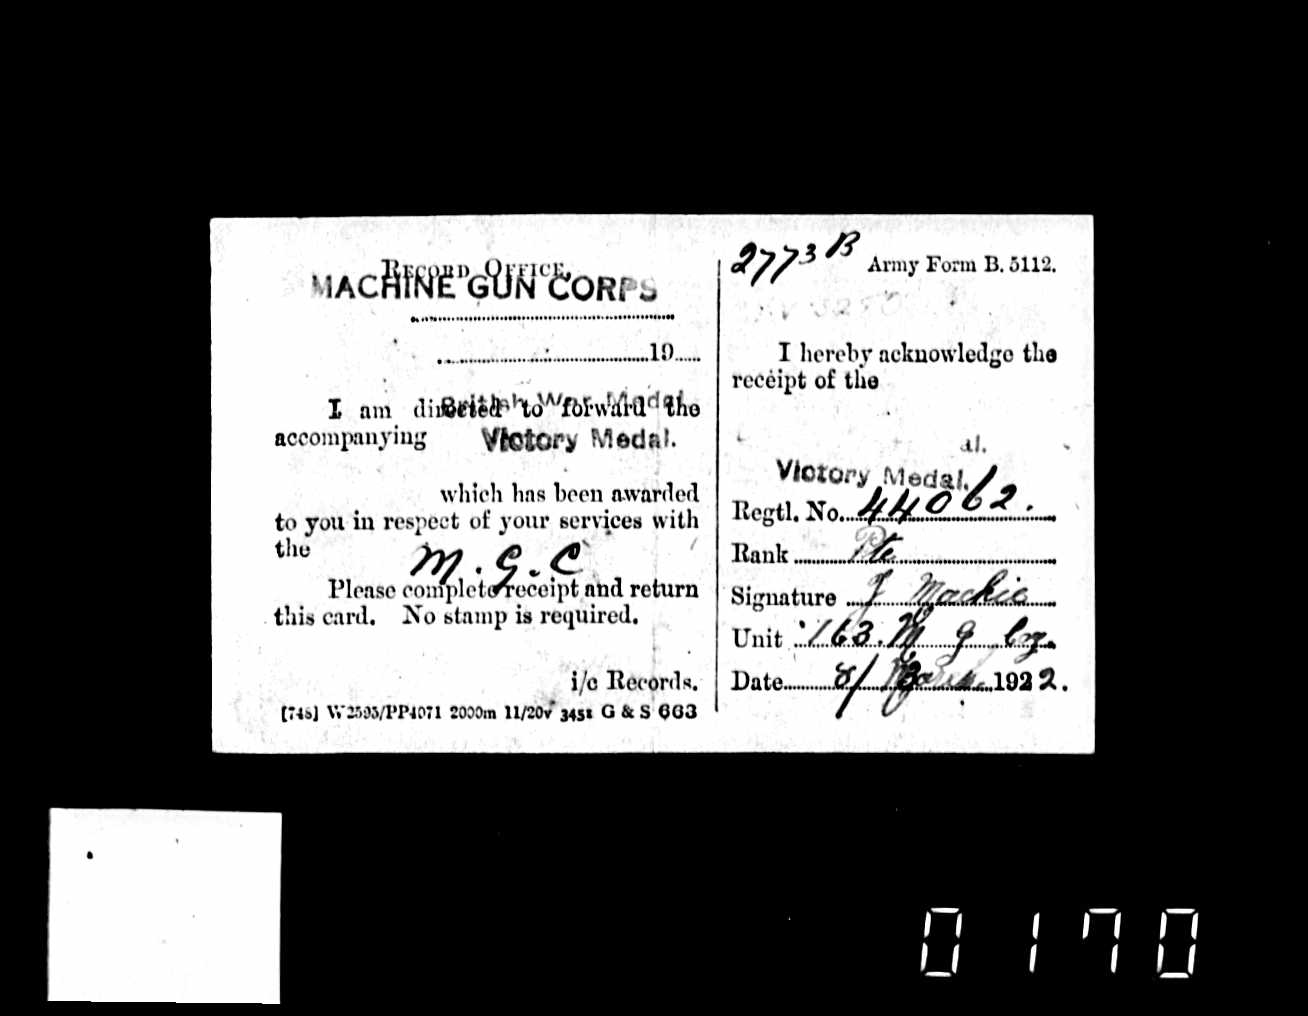 RECORD OFFICE,
MACHINE GUN CORPS
19
I am directed to forward the
British War Medal
accompanying Victory Medal.
which has been awarded
to you in respect of your services with
the
M. G. C
Please complete receipt and return
this card. No stamp is required.
i/c Records.
[748] W2595/PP4071 2000m 11/20v 3451 G & S 663
2773 B
Army Form B. 5112.
I hereby acknowledge the
receipt of the
al.
Victory Medal.
Regtl. No. 44062.
Rank Pte
Signature J Mackie
Unit 163. M G Coy.
Date 8/ 3 1922.
0170